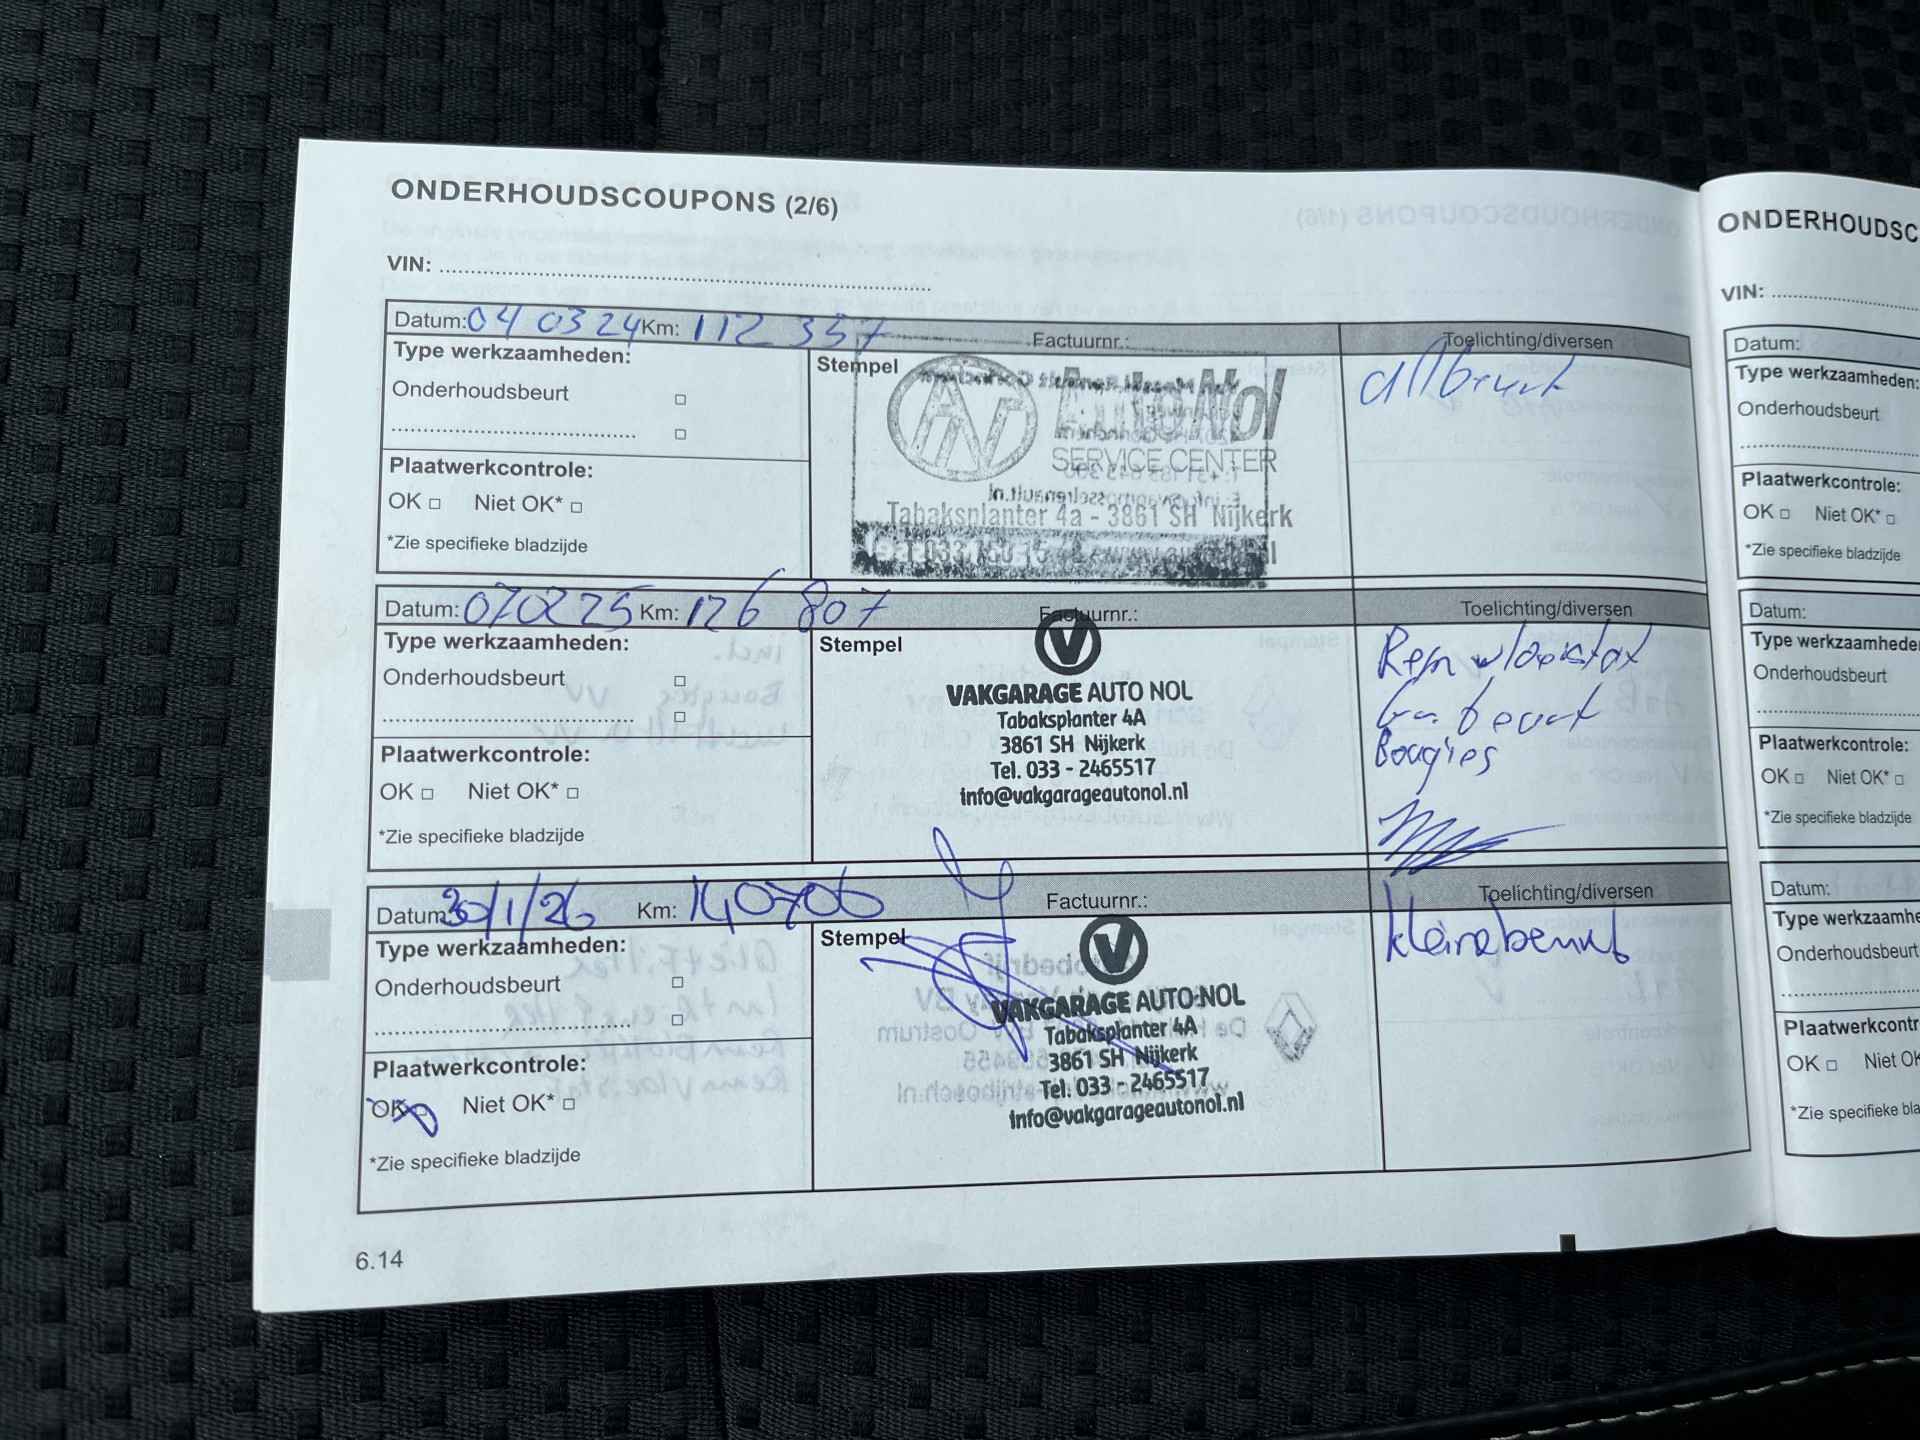 ONDERHOUDSCOUPONS (2/6)
VIN:
Datum: 04 03 24 Km: 112 357 Factuurnr.: Toelichting/diversen
Type werkzaamheden:
Onderhoudsbeurt
Plaatwerkcontrole:
OK Niet OK*
*Zie specifieke bladzijde
Stempel
AutoNol
SERVICE CENTER
Tabaksplanter 4a - 3861 SH Nijkerk
Datum: 070225 Km: 126 807 Factuurnr.: Toelichting/diversen
Type werkzaamheden:
Onderhoudsbeurt
Plaatwerkcontrole:
OK Niet OK*
*Zie specifieke bladzijde
Stempel
VAKGARAGE AUTO NOL
Tabaksplanter 4A
3861 SH Nijkerk
Tel. 033 - 2465517
info@vakgarageautonol.nl
Rem vloeistof
beurt
Bougies
Datum: 30/1/26 Km: 140706 Factuurnr.: Toelichting/diversen
Type werkzaamheden:
Onderhoudsbeurt
Plaatwerkcontrole:
OK Niet OK*
*Zie specifieke bladzijde
Stempel
VAKGARAGE AUTO NOL
Tabaksplanter 4A
3861 SH Nijkerk
Tel. 033 - 2465517
info@vakgarageautonol.nl
kleine beurt
6.14
ONDERHOUDSC
VIN:
Datum:
Type werkzaamheden:
Onderhoudsbeurt
Plaatwerkcontrole:
OK Niet OK*
*Zie specifieke bladzijde
Datum:
Type werkzaamhede
Onderhoudsbeurt
Plaatwerkcontrole:
OK Niet OK*
*Zie specifieke bladzijde
Datum:
Type werkzaamhe
Onderhoudsbeurt
Plaatwerkcontr
OK Niet OK
*Zie specifieke bla